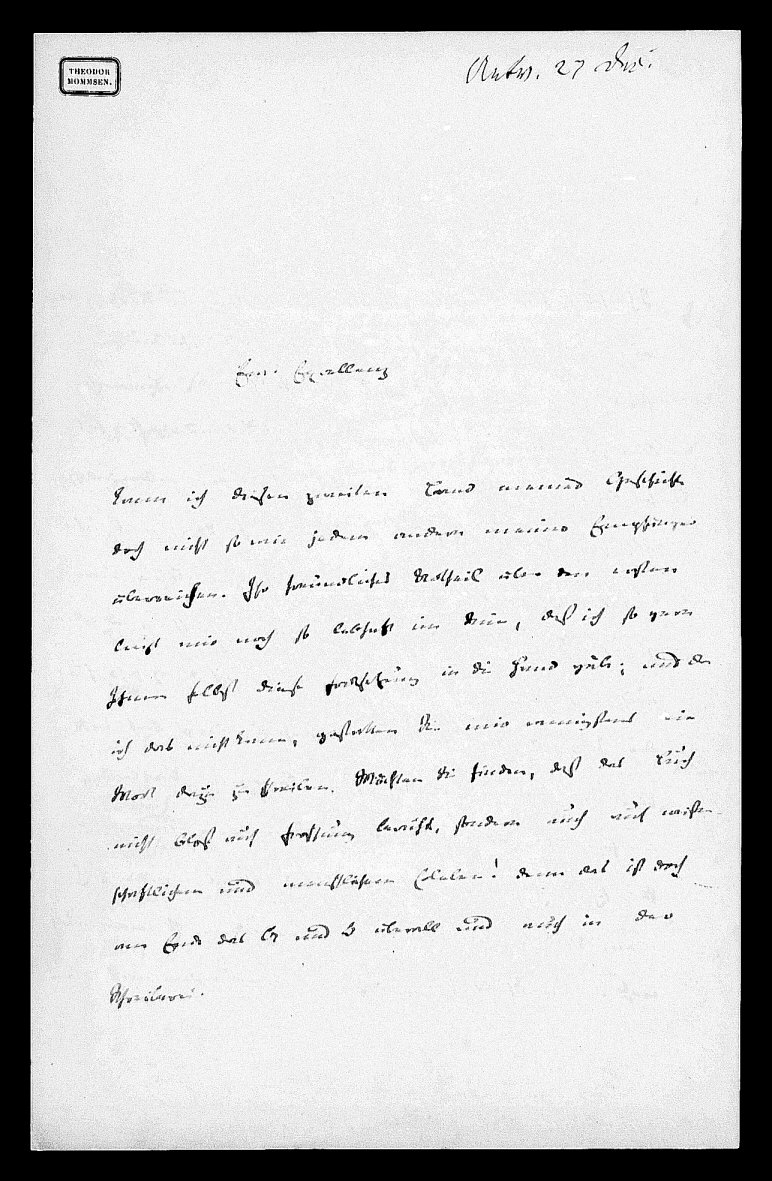 THEODOR
MOMMSEN.
Antw. 27 Dec.
Ew. Excellenz
kann ich diesen zweiten Band meiner Geschichte
doch nicht so wie jedem andern meiner Empfänger
überreichen. Ihr freundliches Urtheil über den ersten
liegt mir noch so lebhaft im Sinn, daß ich so gern
Ihnen selbst diese Fortsetzung in die Hand gäbe; und da
ich das nicht kann, gestatten Sie mir wenigstens ein
Wort dazu zu schreiben. Möchten Sie finden, daß das Buch
nicht bloß auf Forschung beruht, sondern auch auf wissen-
schaftlichem und menschlichem Erleben! denn das ist doch
am Ende das A und O überall und auch in der
Schreiberei.